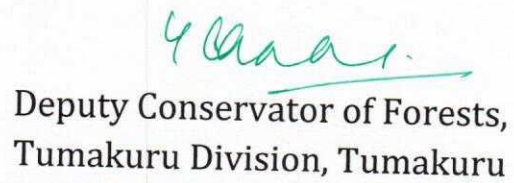 Deputy Conservator of Forests,
Tumakuru Division, Tumakuru